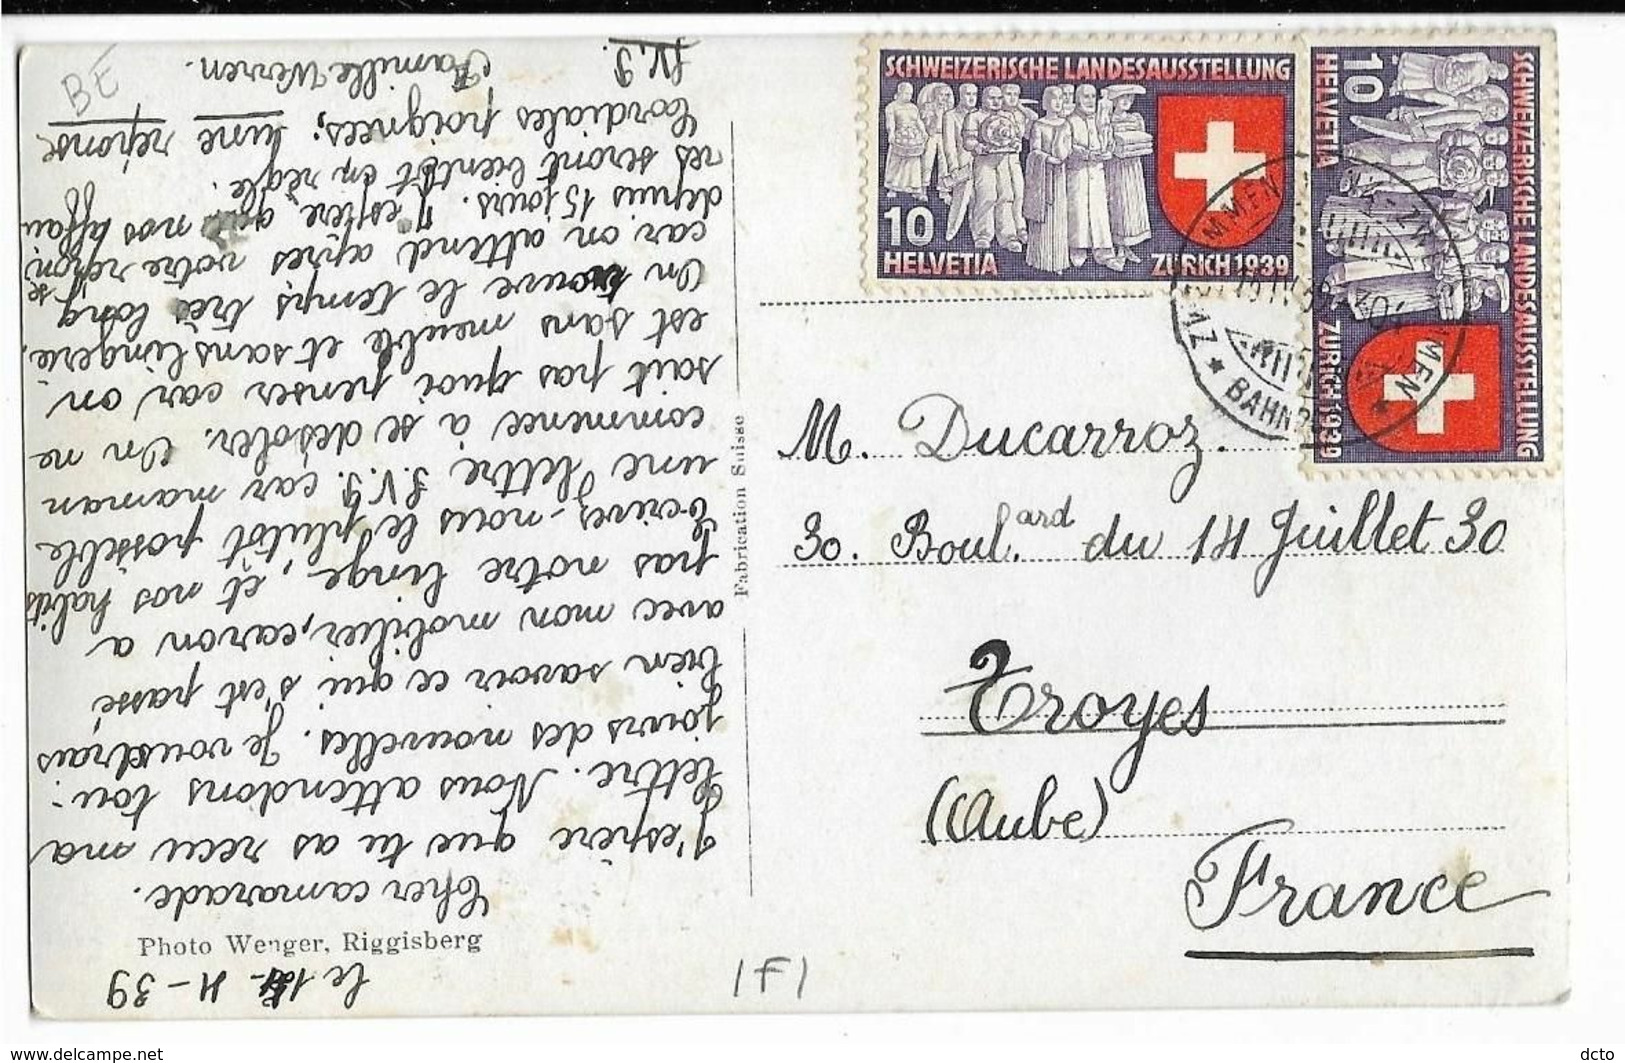 BE
SCHWEIZERISCHE LANDESAUSSTELLUNG
10
HELVETIA
ZURICH 1939
SCHWEIZERISCHE LANDESAUSSTELLUNG
10
HELVETIA
ZURICH 1939
BAHNPOST
M. Ducarroz.
30. Boul.ard du 14 Juillet 30
Troyes
(Aube)
France
1F1
Fabrication Suisse
Photo Wenger, Riggisberg
39
Cher camarade.
J'espère que tu as recu ma
lettre. Nous attendons tou-
jours des nouvelles. Je voudrais
bien savoir ce qui s'est passé,
avec mon mobilier, car on a
pas notre linge, et nos habits
Ecrivez-nous le plutôt possible
une lettre S.V.P. car maman
commence à se désoler. On ne
sait pas quoi penser car on
est sans meuble et sans lingerie.
On trouve le temps très long,
car on attend après votre réponse
depuis 15 jours. J'espère que nos affai
res seront bientôt en règle.
Cordiales poignées; une réponse
Famille Werren.
www.delcampe.net
dcto